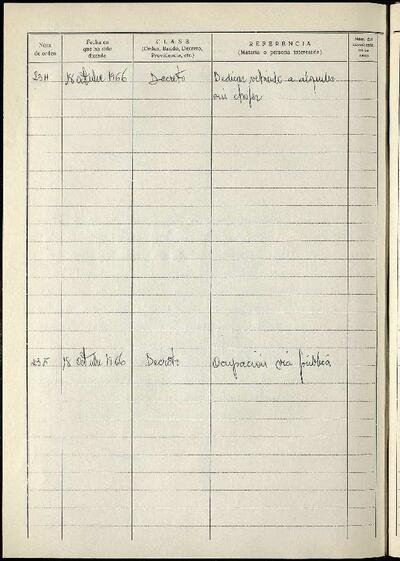 Núm. de orden
Fecha en que ha sido dictada
CLASE
(Orden, Bando, Decreto, Providencia, etc.)
REFERENCIA
(Materia o persona interesada)
18 octubre 1966 Decreto Dedicar a alquiler
sin chofer
18 octubre 1966 Decreto Ocupación vía pública